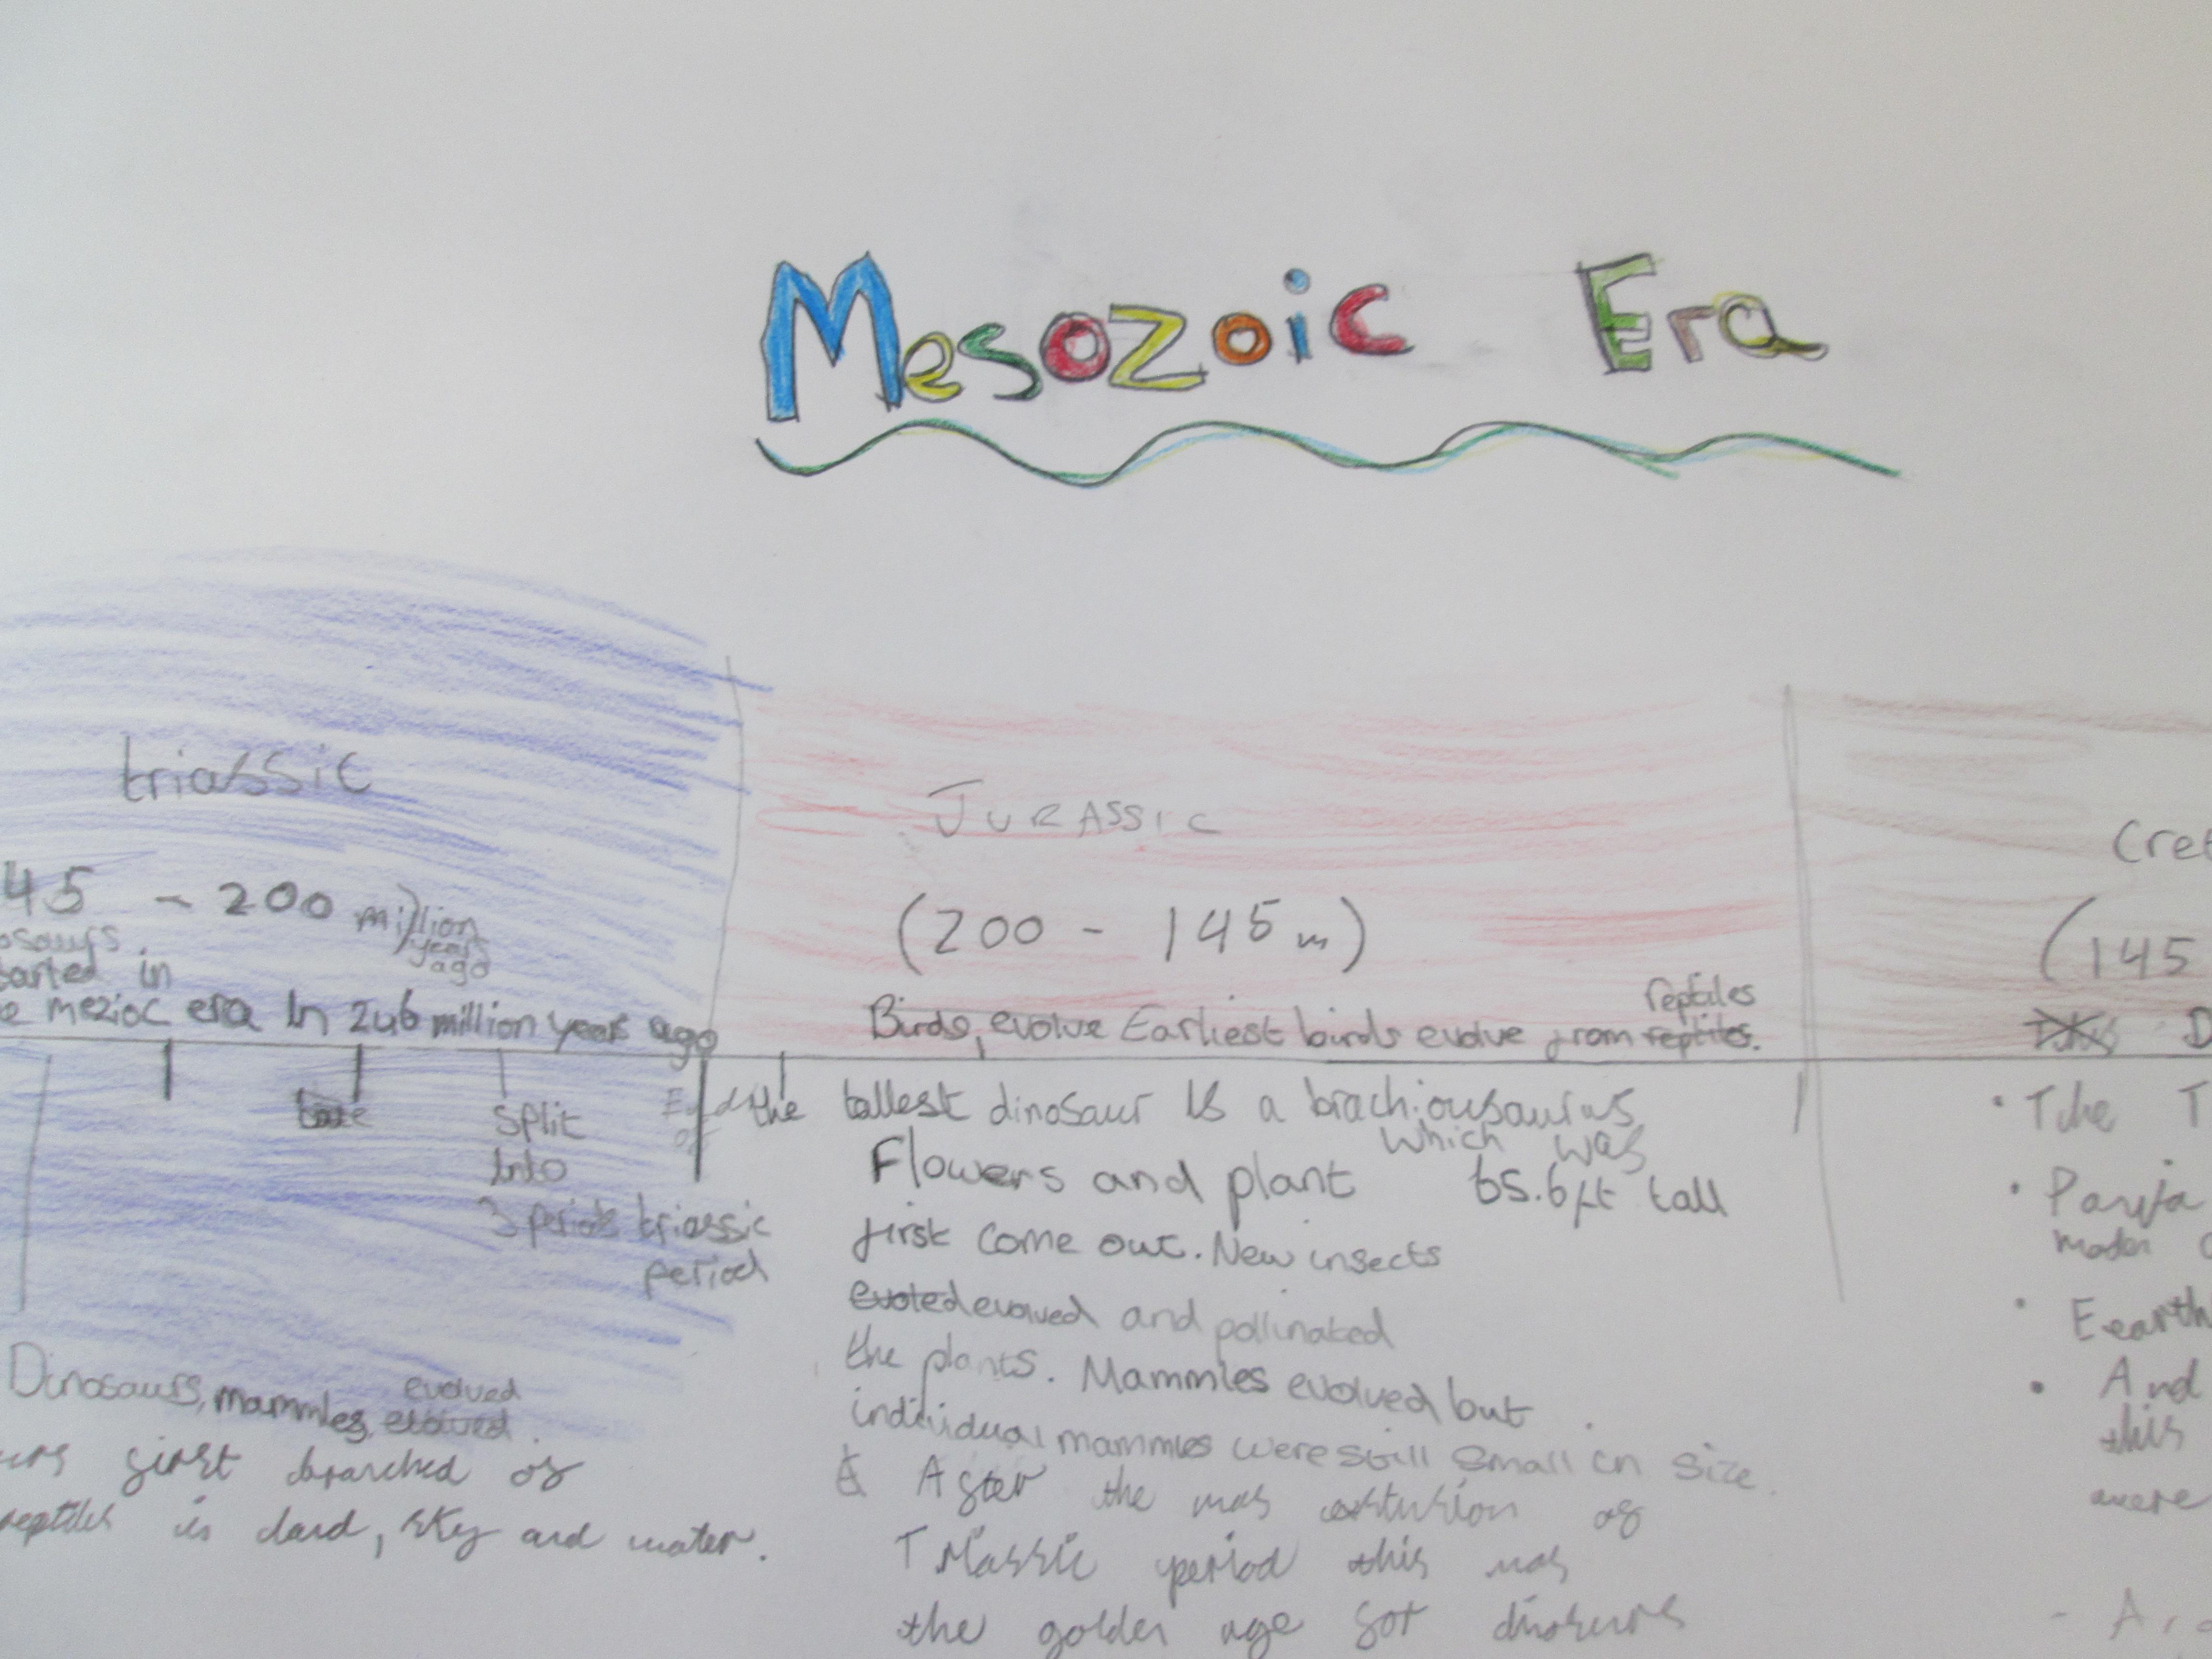 Mesozoic Era
triassic
45 - 200 million
years
ago
osaurs.
tarted in
e mezioc era In 246 million years ago
split
Into
3 periods triassic
period
End
of
Dinosaurs, mammles, evolved
evolved.
urs first branched of
reptiles in land, sky and water.
JURASSIC
(200 - 145 m)
reptiles
Birds, evolve Earliest birds evolve from reptiles.
the tallest dinosaur Is a brachiousaurus
which was
65.6ft tall
Flowers and plant
first come out. New insects
evoted evolved and pollinated
the plants. Mammles evolved but
individual mammles were still small in size.
After the mas of
Triassic period this was
the golden age for
Cret
(145
D
• The T
•
• Eearth
• And
this
were
- A